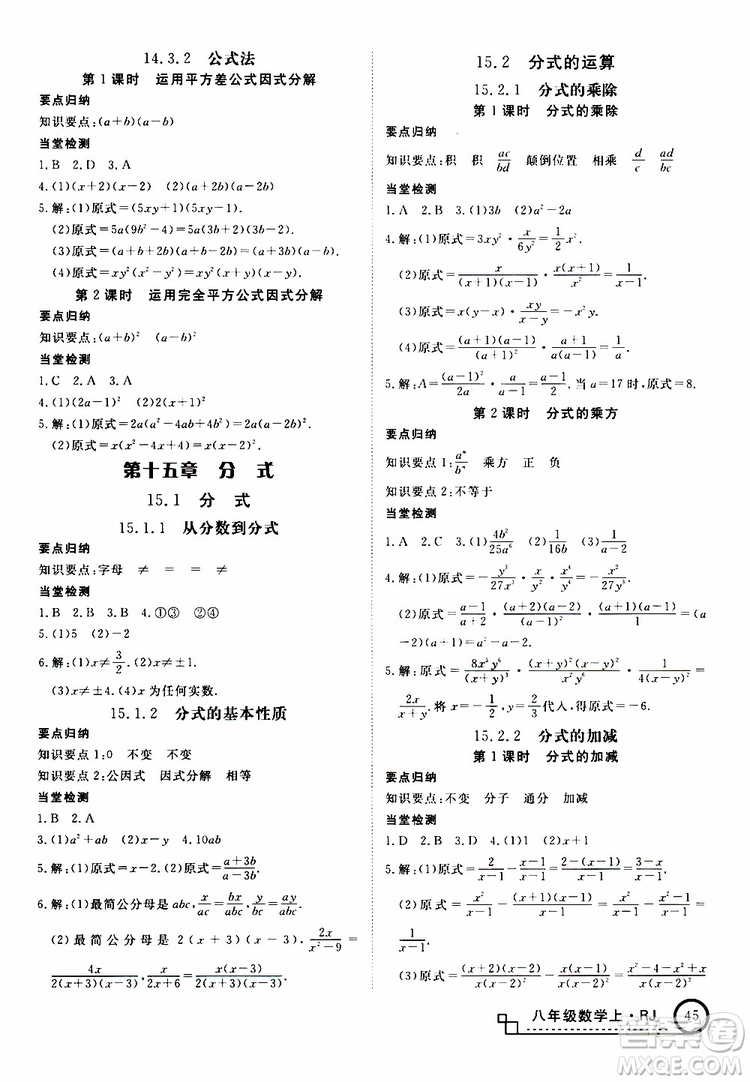 14.3.2 公式法
第1课时 运用平方差公式因式分解
要点归纳
知识要点:(a+b)(a-b)
当堂检测
1.B 2.D 3.A
4.(1)(x+2)(x-2) (2)(a+2b)(a-2b)
5.解:(1)原式=(5xy+1)(5xy-1).
(2)原式=5a(9b²-4)=5a(3b+2)(3b-2).
(3)原式=(a+b+2b)(a+b-2b)=(a+3b)(a-b).
(4)原式=xy²(x²-y²)=xy²(x+y)(x-y).
第2课时 运用完全平方公式因式分解
要点归纳
知识要点:(a+b)² (a-b)²
当堂检测
1.C 2.D 3.A
4.(1)(2a-1)² (2)(x-2)²
5.解:(1)原式=2a(a²-4ab+4b²)=2a(a-2b)².
(2)原式=x(x²-2x+1)=x(x-1)².
第十五章 分 式
15.1 分 式
15.1.1 从分数到分式
要点归纳
知识要点:字母 ≠ = = ≠
当堂检测
1.B 2.B 3.A 4.①③ ②④
5.(1)5 (2)-2
6.解:(1)x≠3/2. (2)x≠±1.
(3)x≠±4. (4)x为任何实数.
15.1.2 分式的基本性质
要点归纳
知识要点1:0 不变 不变
知识要点2:公因式 因式分解 相等
当堂检测
1.B 2.A
3.(1)a²+ab (2)x-y 4.10ax
5.解:(1)原式=x-2. (2)原式=(a+3b)/(a-3b).
6.解:(1)最简公分母是abc, x/ac=bx/abc, y/bc=ay/abc.
(2)最简公分母是2(x+3)(x-3), 2x/(x²-9)=
4x/(2(x+3)(x-3)), x/(2x+6)=x(x-3)/(2(x+3)(x-3)).
15.2 分式的运算
15.2.1 分式的乘除
第1课时 分式的乘除
要点归纳
知识要点:积 积 ac/bd 颠倒位置 相乘 d/c ad/bc
当堂检测
1.A 2.B 3.(1)3b (2)a²-2a
4.解:(1)原式=3xy²·x/6y²=1/2x².
(2)原式=x/((x+1)(x-1))·x(x+1)/1=x²/(x-1).
(3)原式=x(y-x)·xy/(x-y)=-x²y.
(4)原式=(a+1)²/((a+1)(a-1))·(a-1)²/(a(a+1))=(a-1)/a.
5.解:A=(a-1)²/2a·a/(a-1)=(a-1)/2.当a=17时,原式=8.
第2课时 分式的乘方
要点归纳
知识要点1:aⁿ/bⁿ 乘方 正 负
知识要点2:不等于
当堂检测
1.A 2.C 3.(1)4b²/25a⁶ (2)1/16b (3)1/(a-2)
4.解:(1)原式=-y³/27x³·x/y²·x²/y=-1/27.
(2)原式=(a-1)/(a+2)·(a+2)(a-2)/(a-1)²·(a+1)(a-1)/1=(a
-2)(a+1)=a²-a-2.
5.解:原式=8x³y⁶/(x+y)³·(x+y)²(x-y)²/(x-y)²·1/4x²y⁶=
2x/(x+y).将x=-1/2,y=2/3代入,得原式=-6.
15.2.2 分式的加减
第1课时 分式的加减
要点归纳
知识要点:不变 分子 通分 加减
当堂检测
1.D 2.C 3.A 4.(1)1 (2)x+1
5.解:(1)原式=2/(x-1)-(x-1)/(x-1)=(2-x+1)/(x-1)=(3-x)/(x-1).
(2)原式=x²/(x-1)-(x+1)(x-1)/(x-1)=x²/(x-1)-(x²-1)/(x-1)=
1/(x-1).
(3)原式=(x+2)(x-2)/(x(x-2)²)-x(x-1)/(x(x-2)²)=
八年级数学上·RJ 45